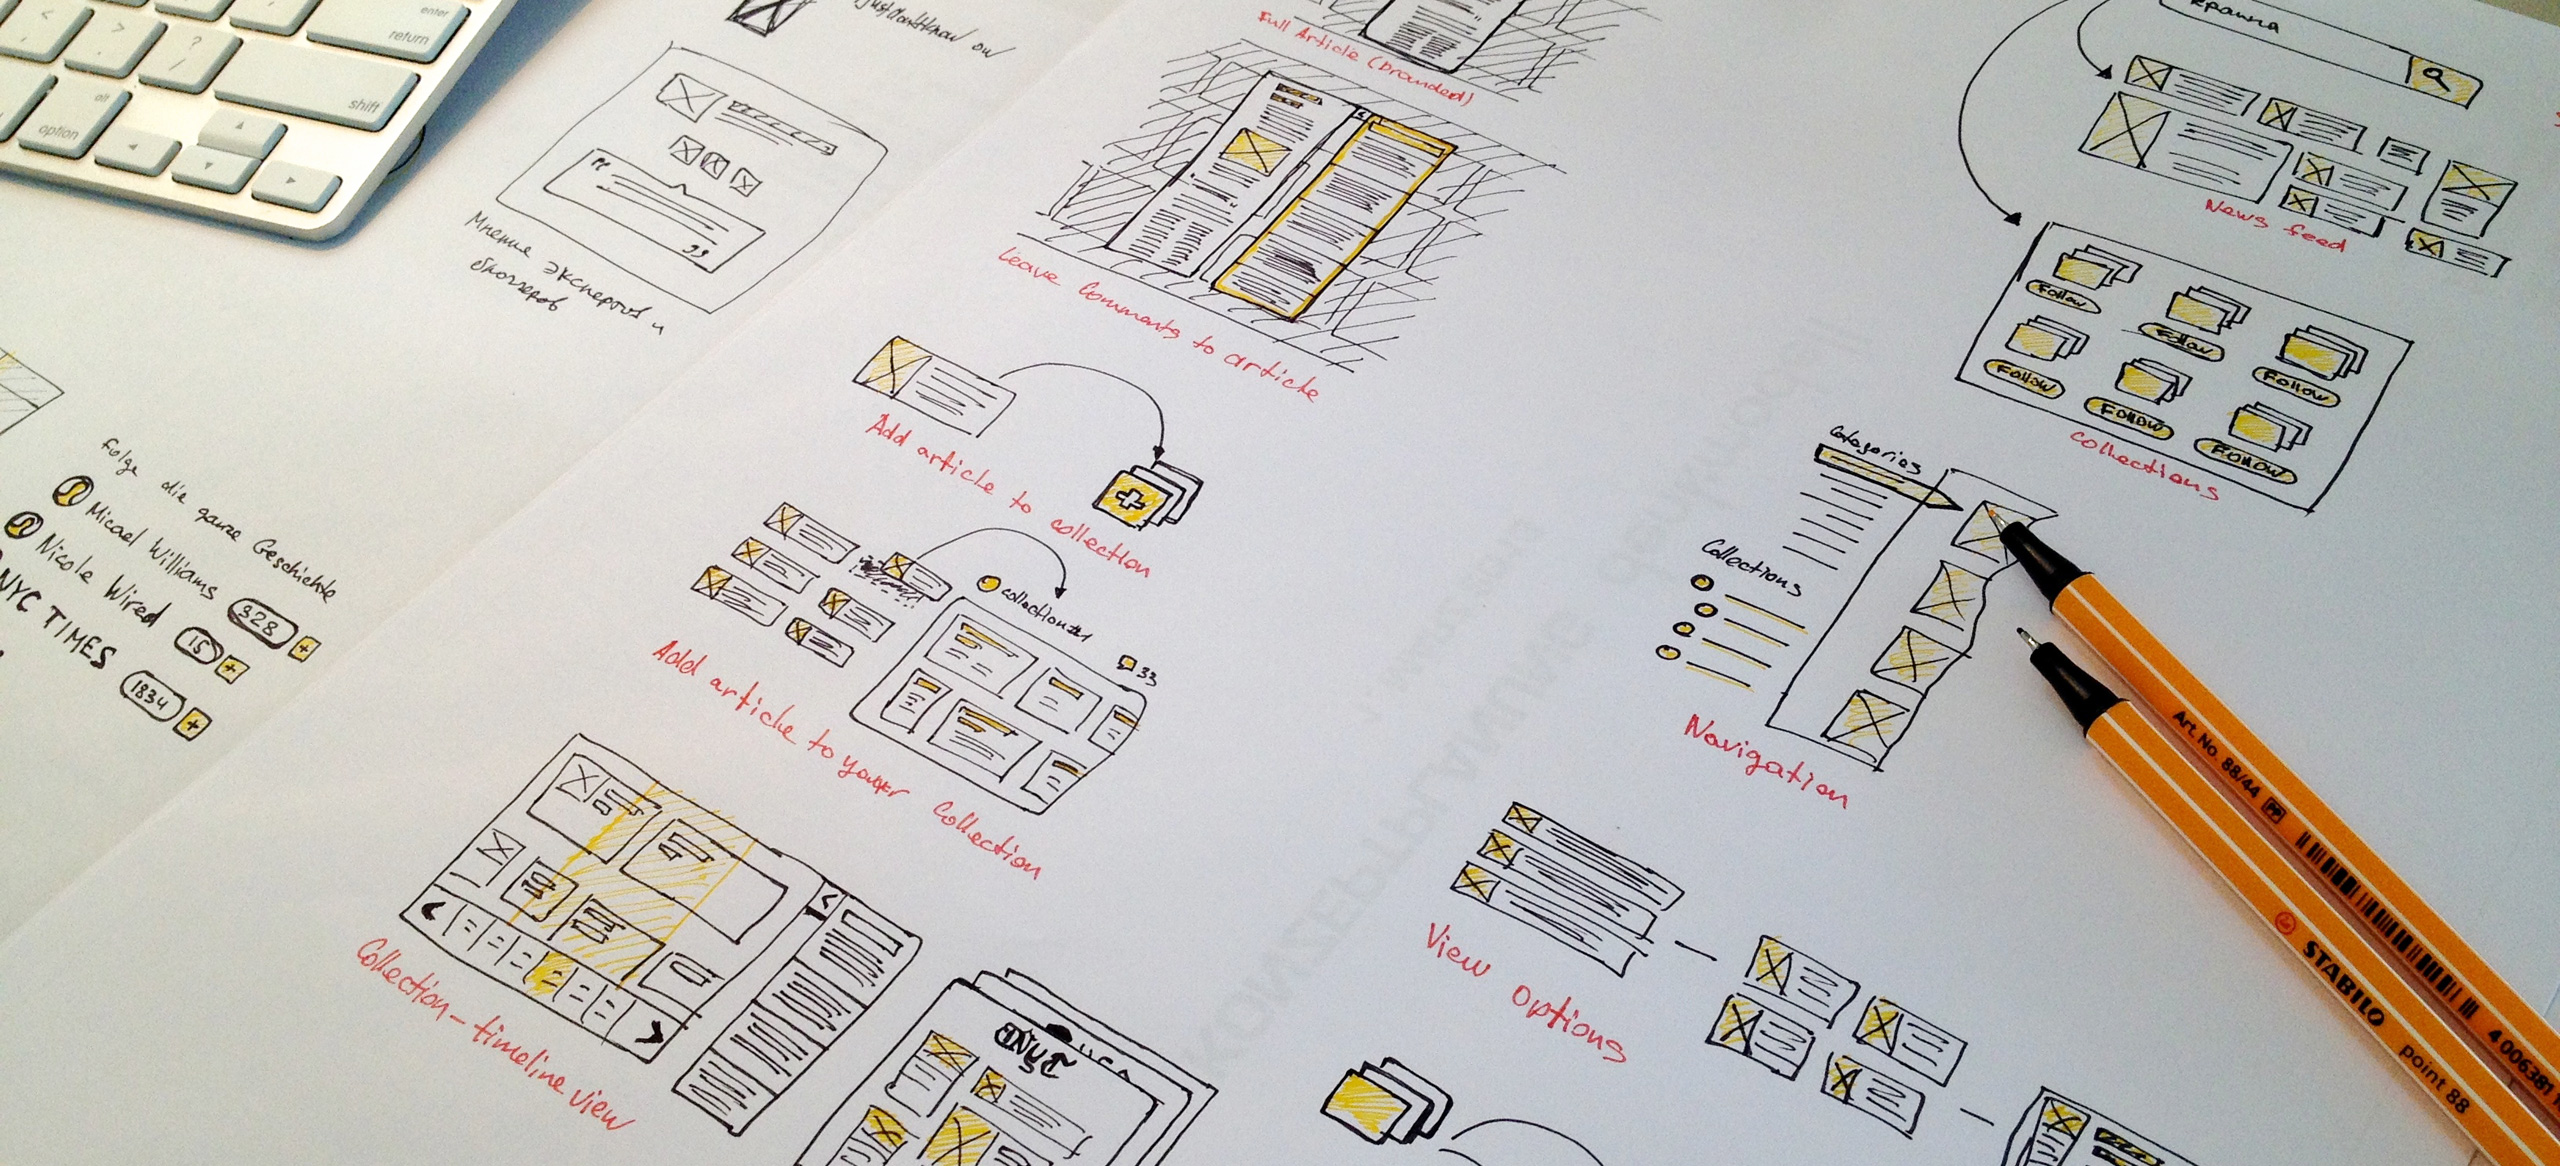 enter
return
shift
alt
option
Мнение экспертов и
блоггеров
Folge die ganze Geschichte
Micael Williams 328
Nicole Wired 15
NYC TIMES 1834
Full Article (branded)
Leave Comments to article
Add article to collection
collection
33
Add article to your Collection
Collection-timeline view
NYT
News feed
Follow
Follow
Follow
Follow
Follow
Follow
collections
Categories
Collections
Navigation
View options
Art. No. 88/44 PP
4 006381
STABILO point 88